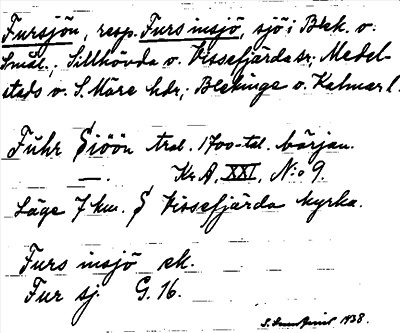 Fursjön, resp. Furs insjö, sjö i Blek. o.
Smål., Sillhövda o. Vissefjärda sr; Medel-
stads o. S. Möre hdr; Blekinge o. Kalmar l.
Fuhr Siöön trol. 1700-tal. början.
—. Kr. A. XXI, N:o 9.
Läge 7 km. S Vissefjärda kyrka.
Furs insjö ek.
Fur sj. G. 16.
S. 1938.